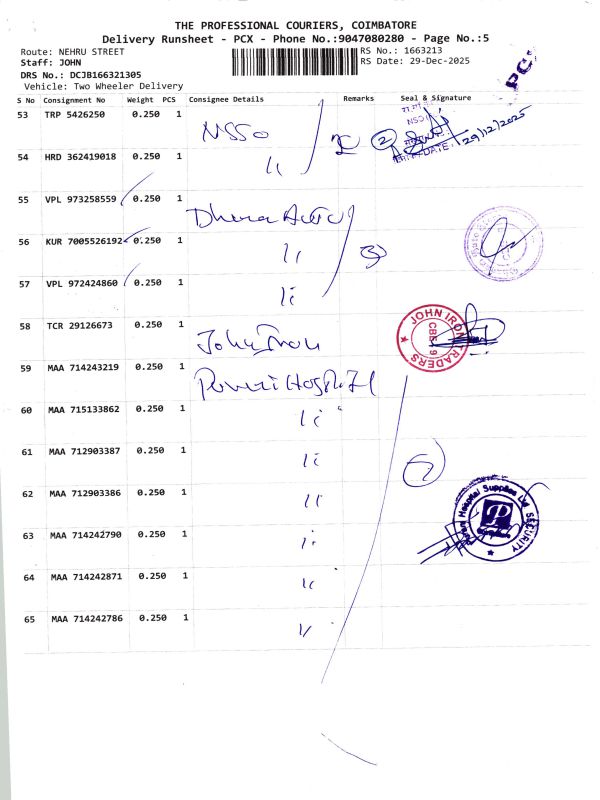 THE PROFESSIONAL COURIERS, COIMBATORE
Delivery Runsheet - PCX - Phone No.:9047080280 - Page No.:5
Route: NEHRU STREET
RS No.: 1663213
Staff: JOHN
RS Date: 29-Dec-2025
DRS No.: DCJB166321305
Vehicle: Two Wheeler Delivery
S No Consignment No Weight PCS Consignee Details Remarks Seal & Signature
53 TRP 5426250 0.250 1 NSSO 2 29/12/2025
54 HRD 362419018 0.250 1 11
55 VPL 973258559 0.250 1 Dhura Auto
56 KUR 7005526192 0.250 1 11 3
57 VPL 972424860 0.250 1 11
58 TCR 29126673 0.250 1 John Iron JOHN IRON TRADERS
59 MAA 714243219 0.250 1 Hospital
60 MAA 715133862 0.250 1 11
61 MAA 712903387 0.250 1 11 7
62 MAA 712903386 0.250 1 11 Hospital Supplies SECURITY
63 MAA 714242790 0.250 1 11
64 MAA 714242871 0.250 1 11
65 MAA 714242786 0.250 1 11